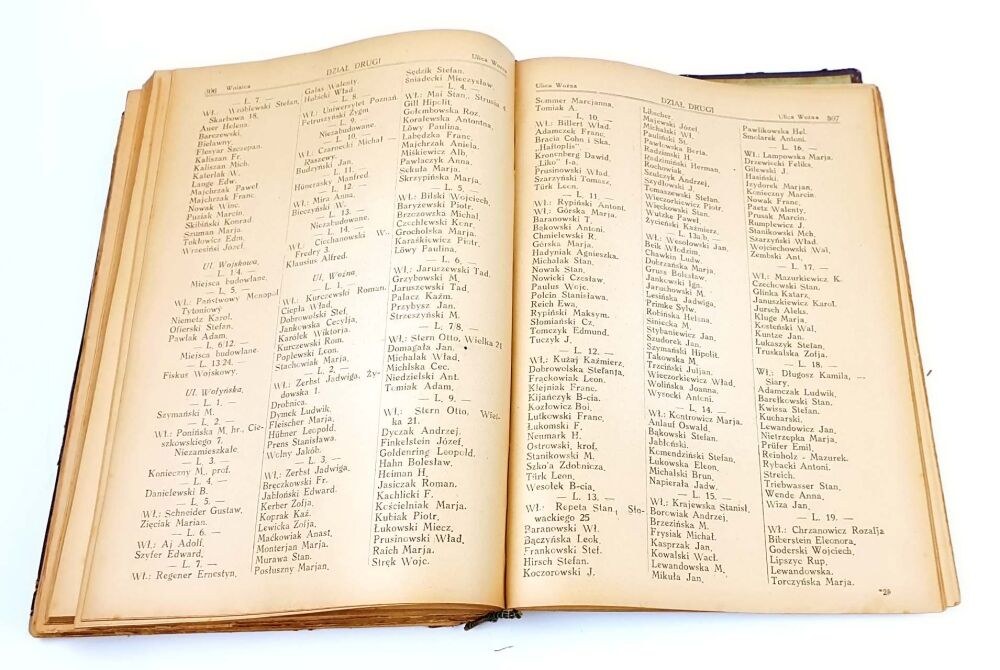 396 Wolnica
DZIAŁ DRUGI
Ulica Woźna
— L. 7. —
Wł.: Wróblewski Stefan,
Skarbowa 18.
Auer Helena.
Barezewski.
Bielawny.
Flesyar Szczepan.
Kaliszan Fr.
Kaliszan Mich.
Katerlak W.
Lange Edw.
Majchrzak Paweł
Majchrzak Franc.
Nowak Winc.
Puziak Marcin.
Skibiński Konrad
Szuman Marja.
Tokłowicz Edm.
Wrzesiński Józef.
Ul. Wojskowa.
— L. 1/4. —
Miejsca budowlane.
— L. 5. —
Wł.: Państwowy Monopol
Tytoniowy
Niemetz Karol.
Ofierski Stefan.
Pawlak Adam.
— L. 6/12. —
Miejsca budowlane.
— L. 13/24. —
Fiskus Wojskowy.
Ul. Wołyńska.
— L. 1. —
Szymański M.
— L. 2. —
Wł.: Ponińska M. hr., Cie-
szkowskiego 7.
Niezamieszkałe.
— L. 3. —
Konieczny M., prof.
— L. 4. —
Danielewski B.
— L. 5. —
Wł.: Schneider Gustaw,
Zięciak Marian.
— L. 6. —
Wł.: Aj Adolf,
Szyfer Edward,
— L. 7. —
Wł.: Regener Ernestyn,
Galas Walenty.
Hubicki Wład.
— L. 8. —
Wł.: Uniwersytet Poznań.
Petruszyński Zygm.
— L. 9. —
Niezabudowane.
— L. 10. —
Wł.: Czarnecki Michał —
Raszewy.
Budzyński Jan.
— L. 11. —
Hünerasky Manfred.
— L. 12. —
Wł.: Mira Anna,
Bieczyński W.
— L. 13. —
Niezabudowane.
— L. 14. —
Wł.: Ciechanowski W.,
Fredry 2.
Klausius Alfred.
Ul. Woźna,
— L. 1. —
Wł.: Kurczewski Roman.
Ciepła Wład.
Dobrowolski Stef.
Jankowska Cecylja.
Karolek Wiktorja.
Kurczewski Rom.
Poplewski Leon.
Stachowiak Marja.
— L. 2. —
Wł.: Zerbst Jadwiga, Ży-
dowska 1.
Drobnica.
Dymek Ludwik.
Fleischer Marja,
Hübner Leopold.
Prens Stanisława.
Wolny Jakób.
— L. 3. —
Wł.: Zerbst Jadwiga.
Breczkowski Fr.
Jabłoński Edward.
Kerber Zofja.
Koprak Kaź.
Lewicka Zofja,
Maćkowiak Anast.
Monterjan Marja.
Murawa Stan.
Posłuszny Marjan.
Sędzik Stefan.
Śniadecki Mieczysław.
— L. 4. —
Wł.: Mai Stan., Strusia 4
Gill Hipolit.
Gołembowska Roz.
Koralewska Antonina.
Löwy Paulina.
Łabędzka Franc.
Majchrzak Aniela.
Miśkiewicz Alb.
Pawlaczyk Anna.
Sekuła Marja.
Skrzypińska Marja.
— L. 5. —
Wł.: Bilski Wojciech,
Baryżewski Piotr.
Brzozowska Michal.
Czechlewski Konr.
Grocholska Marja.
Karaśkiewicz Piotr.
Löwy Paulina.
— L. 6. —
Wł.: Jaruszewski Tad.
Grzybowski M.
Jaruszewski Tad,
Pałacz Kaźm.
Przybysz Jan.
Streszyński M.
— L. 7/8. —
Wł.: Stern Otto, Wielka 21
Domagała Jan.
Michalak Wład.
Michlska Cec.
Niedzielski Ant.
Tomiak Adam,
— L. 9. —
Wł.: Stern Otto, Wiel-
ka 21.
Dyczak Andrzej.
Finkelstein Józef,
Goldenring Leopold.
Hahn Bolesław.
Heiman H.
Jasiczak Roman.
Kachlicki F.
Kościelniak Marja.
Kubiak Piotr,
Łukowski Miecz,
Prusinowski Wład,
Raich Marja.
Stręk Wojc.
Ulica Woźna
DZIAŁ DRUGI
Ulica Woźna 397
Sommer Marcjanna.
Tomiak A.
— L. 10. —
Wł.: Billert Wład.
Adamczek Franc.
Bracia Cohn i Ska.
„Haftoplis".
Kronenberg Dawid,
„Liko" f-a.
Prusinowski Wład.
Szarzyński Tomasz,
Türk Leon.
— L. 11. —
Wł.: Rypiński Antoni.
Wł.: Górska Marja.
Baranowski T.
Bąkowski Antoni.
Chmielewski R.
Górska Marja.
Hadyniak Agnieszka.
Michalak Stan.
Nowak Stan.
Nowicki Czesław.
Paulus Wojc.
Polcin Stanisława.
Reich Ewa,
Rypiński Maksym.
Słomiański Cz.
Tomczyk Edmund.
Tuczyk J.
— L. 12. —
Wł.: Kużaj Kaźmierz.
Dobrowolska Stefanja,
Frackowiak Leon.
Klejniak Franc.
Kijańczyk B-cia.
Kozłowicz Bol.
Lutkowski Franc.
Łukomski F.
Neumark H.
Ostrowski, krof.
Stanikowski M.
Szko'a Zdobnicza.
Türk Leon,
Wesołek B-cia,
— L. 13. —
Wł.: Repeta Stan., Sło-
wackiego 25
Baranowski Wł.
Bączyńska Leok.
Frankowski Stef.
Hirsch Stefan.
Koczorowski J.
Libscher.
Majewski Józef
Michalski Wł.
Pauliński St.
Pawłowska Beria.
Radzimski H.
Radzimiński Herman.
Rochowiak.
Szulczyk Andrzej.
Szydłowski J.
Tomaszewski Stefan.
Wieczorkiewicz Piotr.
Więckowski Stan.
Wutzke Paweł.
Życieński Kaźmierz.
— L. 13a/b. —
Wł.: Wesołowski Jan,
Beik Włodzim,
Chawkin Ludw.
Dobrzańska Marja.
Gruss Bolesław.
Jankowski Ign.
Jaruchowski M.
Lesińska Jadwiga.
Prinske Sylw.
Robińska Helena.
Siniecka M.
Stybaniewicz Jan.
Szudorek Jan.
Szymański Hipolit.
Takowska M.
Trzciński Juljan.
Wieczorkiewicz Wład.
Wolińska Joanna.
Wysocki Antoni.
— L. 14. —
Wł.: Kontrowicz Marja.
Anlauf Oswald.
Bąkowski Stefan.
Jabłoński.
Komendziński Stefan,
Łukowska Eleon,
Michalski Brun.
Napierała Jadw.
— L. 15. —
Wł.: Krajewska Stanisł.
Borowiak Andrzej.
Brzezińska M.
Frysiak Michał.
Kasprzak Jan,
Kowalski Wacł.
Lewandowska M.
Mikuła Jan.
Pawlikowska Hel.
Smolarek Antoni.
— L. 16. —
Wł.: Lampowska Marja.
Drzewiecki Feliks.
Gilewski J.
Hasiński.
Izydorek Marjan.
Konieczny Marcin.
Nowak Franc.
Paetz Walenty.
Prusak Marcin.
Rumplewicz J.
Stanikowski Mch.
Szarzyński Wład.
Wojciechowski Wal.
Zembski Ant.
— L. 17. —
Wł.: Mazurkiewicz K.
Czechowski Stan.
Glinka Katarz.
Januszkiewicz Karol.
Jursch Aleks.
Kluge Marja.
Kosteński Wal.
Kuntze Jan.
Łukaszyk Stefan.
Truskalska Zofja.
— L. 18. —
Wł.: Długosz Kamila, —
Siary.
Adamczak Ludwik,
Barełkowski Stan.
Kwissa Stefan.
Kucharski.
Lewandowicz Jan.
Nietrzepka Marja.
Prüfer Emil.
Reinholz - Mazurek.
Rybacki Antoni.
Streich.
Triebwasser Stan.
Wende Anna,
Wiza Jan.
— L. 19. —
Wł.: Chrzanowicz Rozalja
Biberstein Eleonora,
Goderski Wojciech,
Lipszyc Rup.
Lewandowska.
Torczyńska Marja.
*29